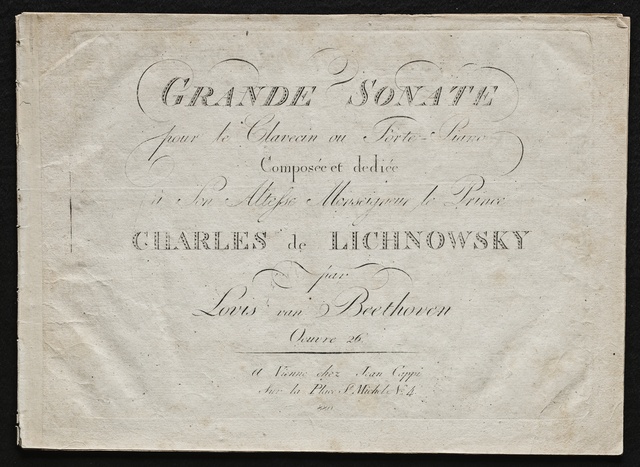 GRANDE SONATE
pour le Clavecin ou Forte-Piano
Composée et dediée
à Son Altesse Monseigneur le Prince
CHARLES de LICHNOWSKY
par
Louis van Beethoven
Oeuvre 26
à Vienne chez Jean Cappi
Sur la Place St. Michel No. 4